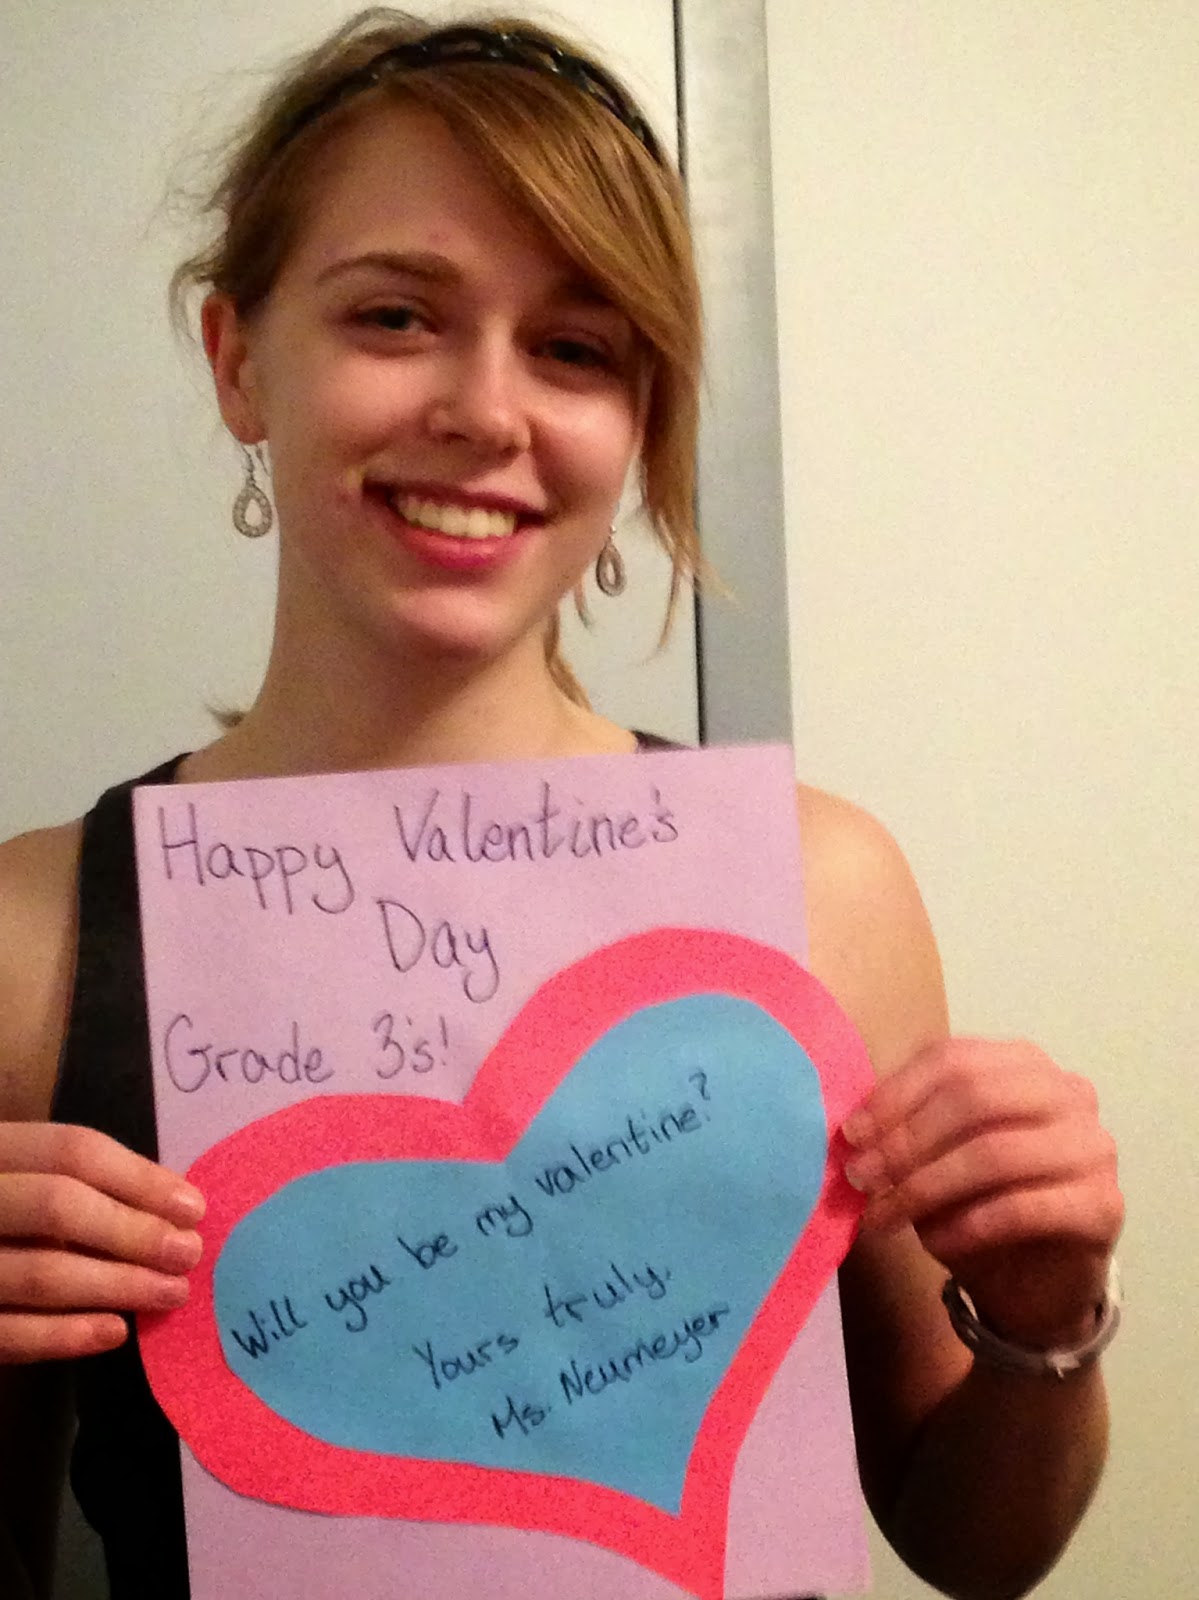 Happy Valentine's
Day
Grade 3's!
Will you be my valentine?
Yours truly,
Ms. Neumeyer